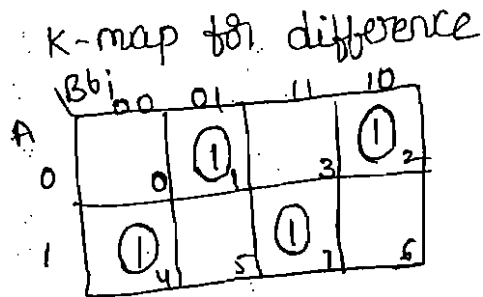 K-map for difference
Bbi
00 01 11 10
A
0 0 1 1 3 1 2
1 1 4 5 1 7 6